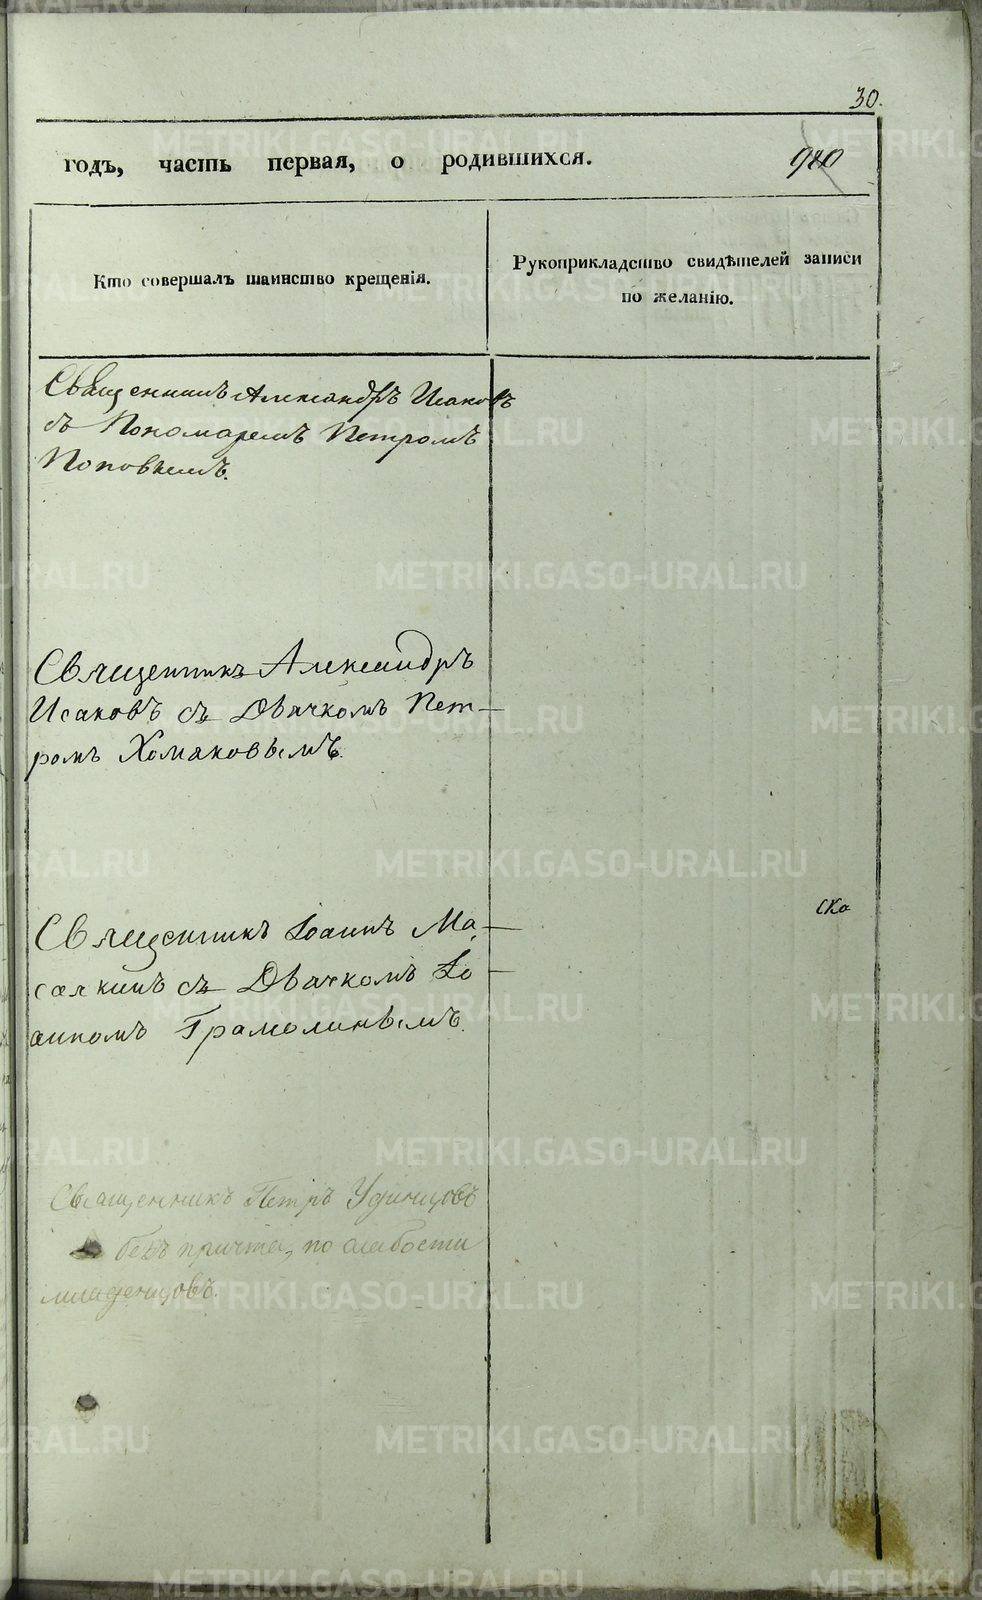 30.
годъ, часть первая, о родившихся.
Кто совершалъ таинство крещенія.
Рукоприкладство свидѣтелей записи
по желанію.
Священникъ Александръ Исаковъ
съ Пономаремъ Петромъ
Поповымъ.
Священникъ Александръ
Исаковъ съ Дьячкомъ Пет-
ромъ Хомяковымъ.
Священникъ Іоаннъ
съ Дьячкомъ Іо
анномъ Грамолинымъ.
ска
Священникъ Петръ Удинцовъ
безъ причта, по слабости
младенцовъ.
METRIKI.GASO-URAL.RU